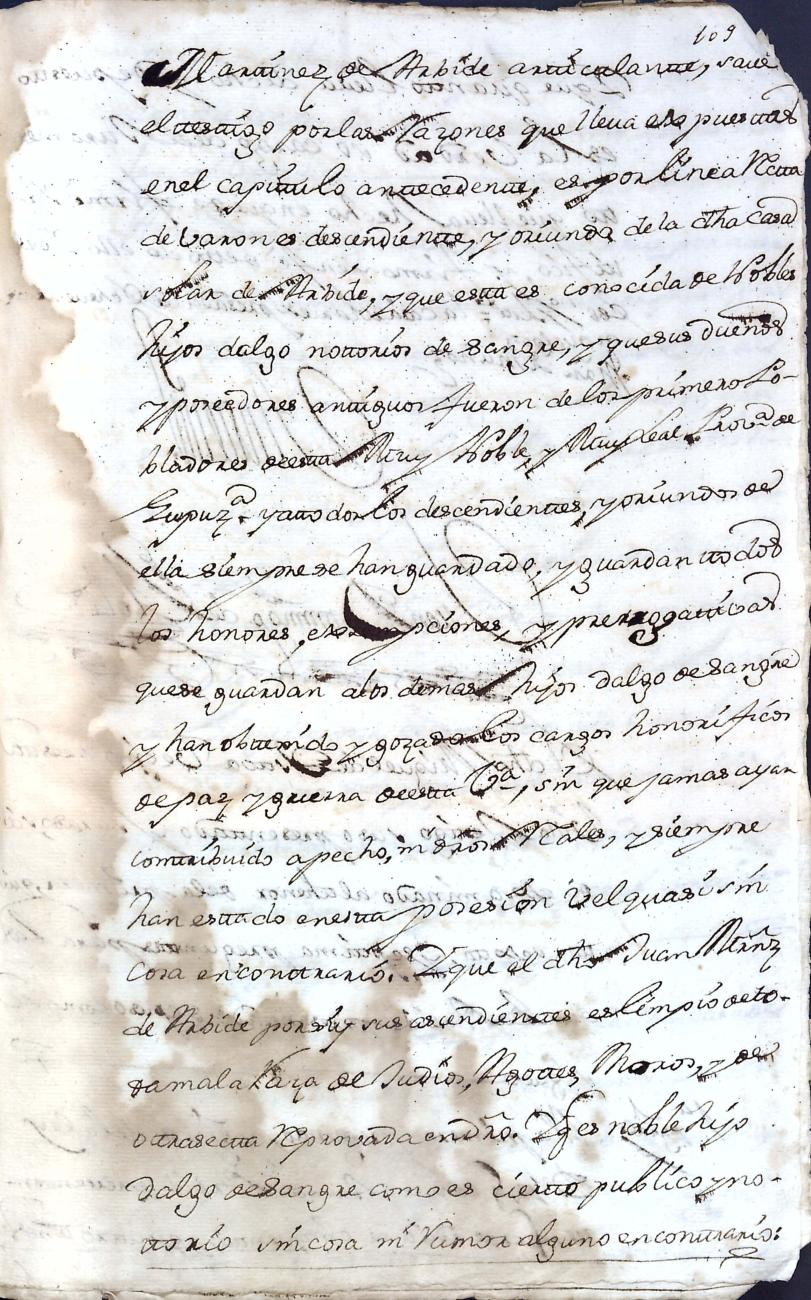 109
Martinez de Arbide articulante, save
el testigo por las Razones que lleva expuestas
en el capitulo antecedente, es por linea Recta
de varones descendiente, y oriundo de la dha Casa
solar de Arbide, y que esta es conocida de Nobles
hijos dalgo nottorios de sangre, y que sus dueños
y poseedores antiguos fueron de los primero Po-
bladores de esta Muy Noble, y Muy Leal Prova de
Guipuza. y a ttodos los descendientes, y oriundos de
ella siempre se han guardado, y guardan ttodos
los honores, exsempciones, y prerrogattivas
que se guardan a los demas hijos dalgo de sangre
y han obttenido y gozado los cargos honorificos
de paz y guerra de esta Va, sin que jamas ayan
contribuido a pecho, ni dros Rales, y siempre
han estado en esta posesion velquasi sin
cosa en conttrario. Y que el dho Juan Mrnz
de Arbide por si y sus ascendientes es limpio de to-
da mala Raza de Judios, Agottes, Moros, y de
otra secta Reprovada en dro. Y q es noble hijo
dalgo de sangre como es cierto publico y no-
ttorio sin cosa ni Rumor alguno en conttrario: